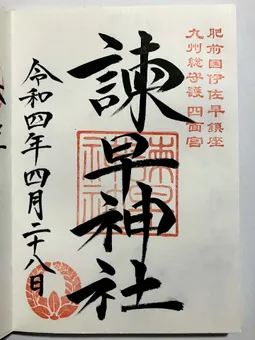 肥前国伊佐早鎮座
九州総守護四面宮
諫早神社
令和四年四月二十八日